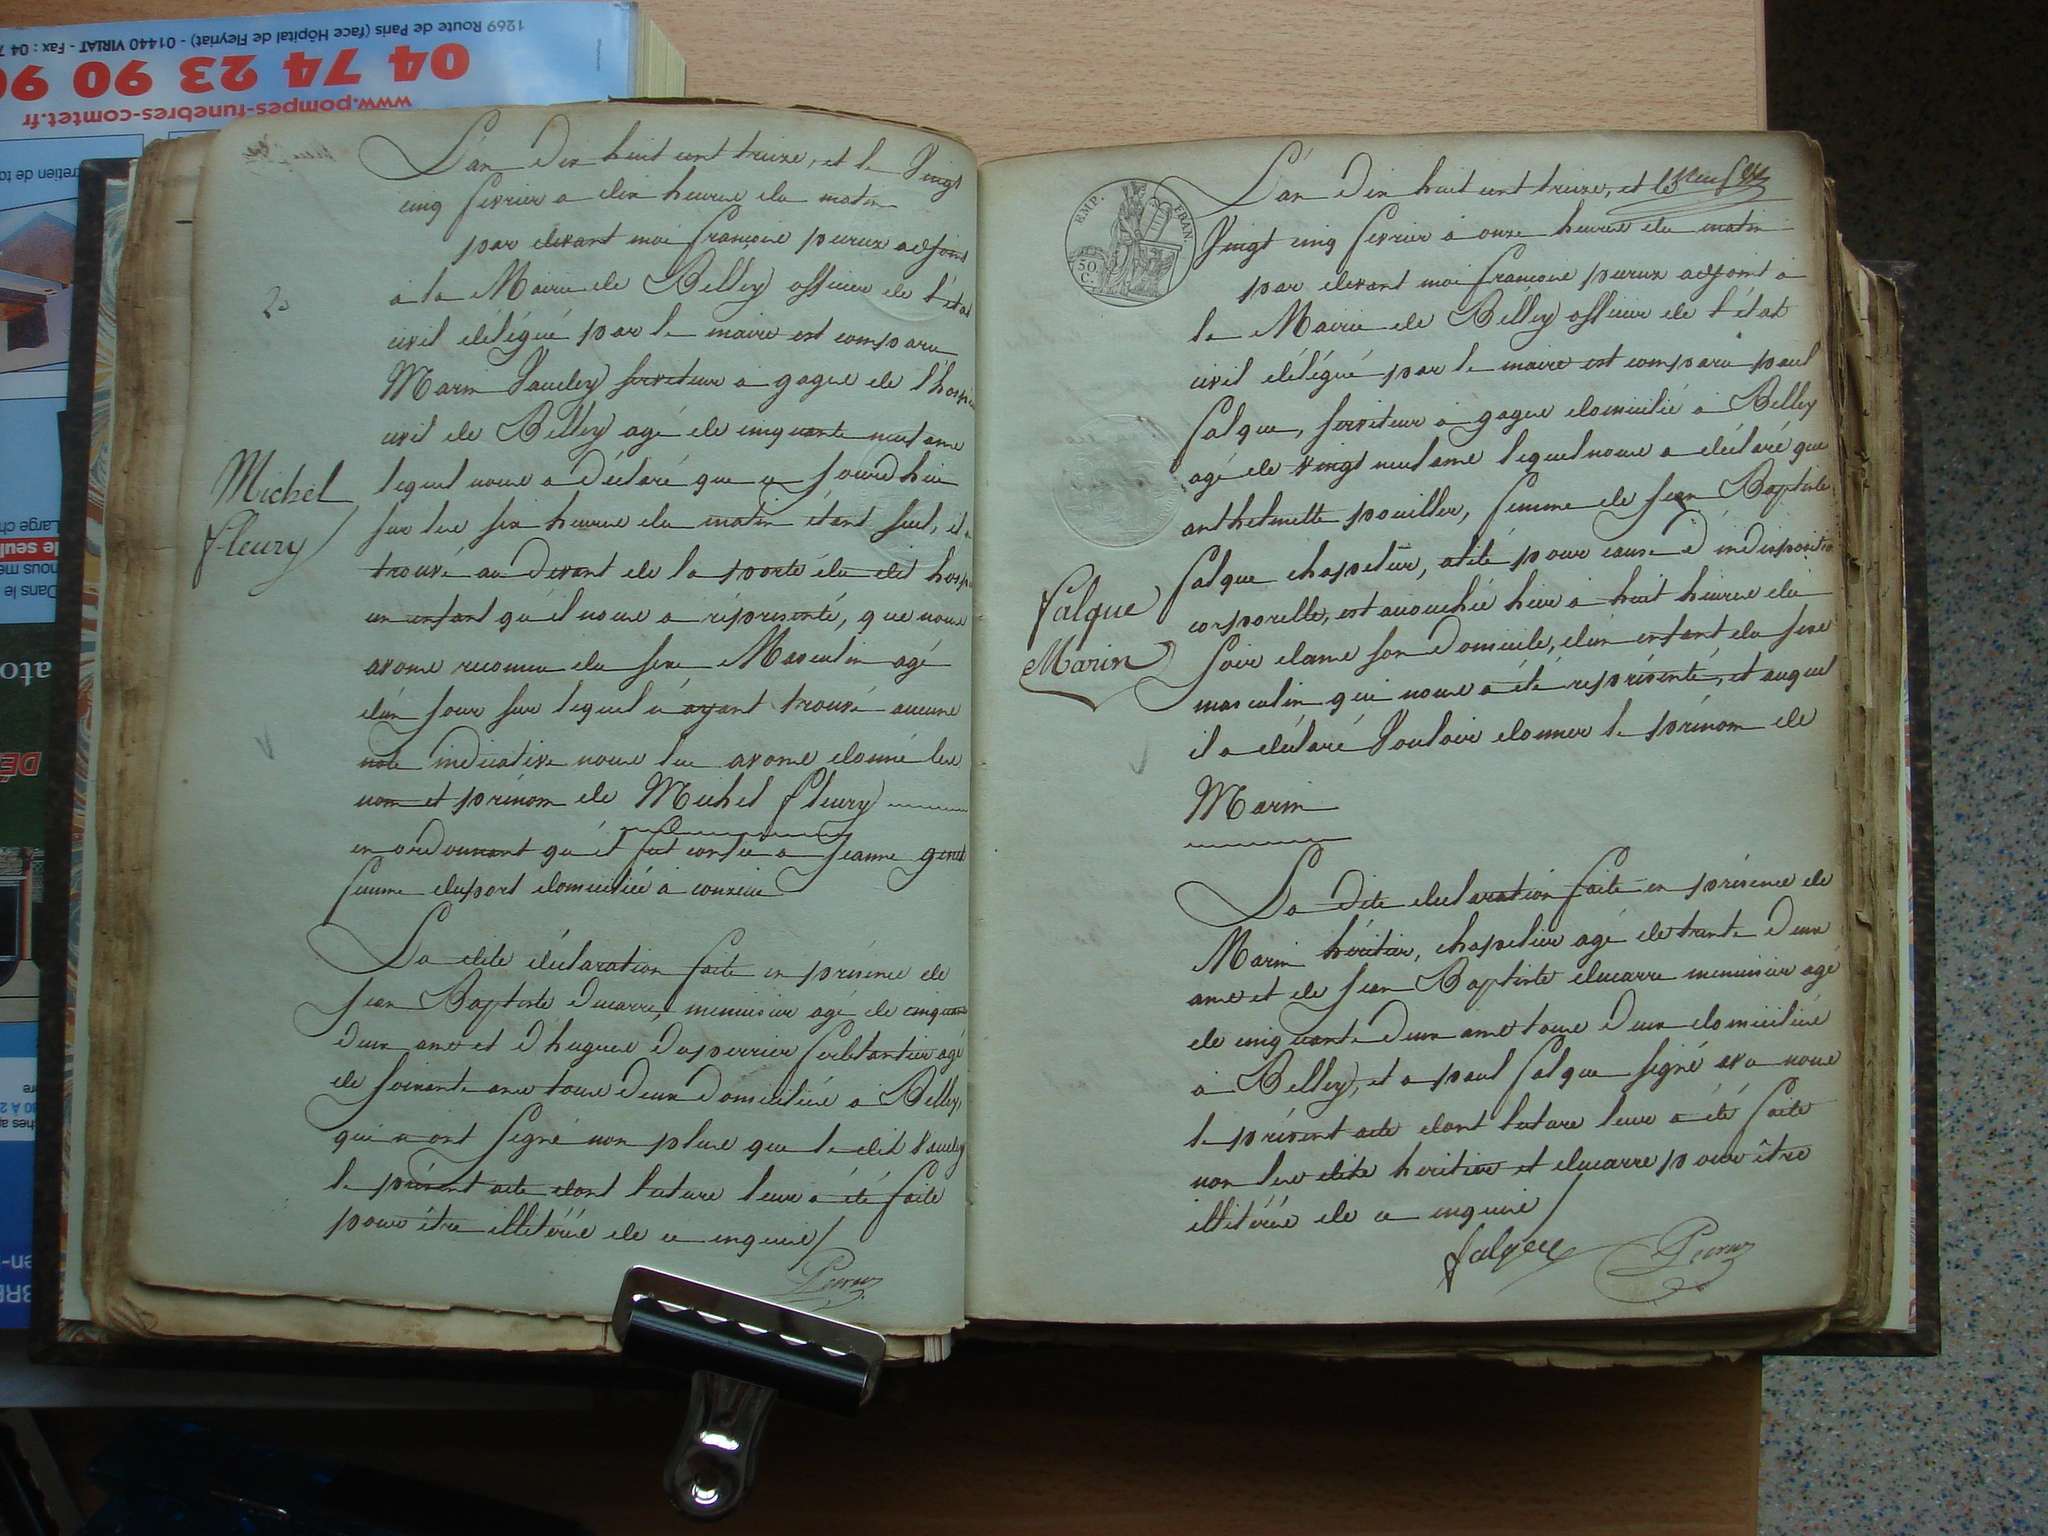 1269 Route de Paris (face Hôpital de Fleyriat) - 01440 VIRIAT - Fax : 04 7
04 74 23 90 90
www.pompes-funebres-comtet.fr
L'an dix huit cent treize, et le Vingt
cinq fevrier a dix heures du matin
par devant moi françois peruz adjoint
a la Mairie de Belley officier de l'état
civil délégué par le maire est comparu
Marin Vaudey serviteur a gages de l'hospice
civil de Belley agé de cinquante neuf ans
lequel nous a déclaré que ce jourdhui
sur les six heures du matin étant seul, il a
trouvé au devant de la porte du dit hospice
un enfant qu'il nous a réprésenté, que nous
avons reconnu du sexe Masculin agé
d'un jour sur lequel n'ayant trouvé aucune
note indicative nous lui avons donné les
nom et prénom de Michel fleury
en ordonnant qu'il fut confié a Jeanne
femme duport domiciliée à
La dite déclaration faite en présence de
Jean Baptiste ducarre, menuisier agé de cinquante
deux ans et d'hugues duperrier ferblantier agé
de soixante ans tous deux domiciliés a Belley,
qui n'ont signé non plus que le dit Vaudey
le présent acte dont lecture leur a été faite
pour être illitérés de ce enquis /
Peruz
Michel
fleury
L'an dix huit cent treize, et le
Vingt cinq fevrier a onze heures du matin
par devant moi françois peruz adjoint a
la Mairie de Belley officier de l'état
civil délégué par le maire est comparu paul
falque, serviteur a gages domicilié a Belley
agé de vingt neuf ans lequel nous a déclaré que
anthelmette pouiller, femme de Jean Baptiste
falque chapelier, alité pour cause d'indisposition
corporelle, est accouchée hier a huit heures du
soir dans son domicile, d'un enfant du sexe
masculin qui nous a été réprésenté, et auquel
il a déclaré Vouloir donner le prénom de
Marin
La dite declaration faite en présence de
Marin héritier, chapelier agé de trente deux
ans et de Jean Baptiste ducarre menuisier agé
de cinquante deux ans tous deux domiciliés
a Belley, et a paul falque signé avec nous
le présent acte dont lecture leur a été faite
non les dits heritier et ducarre pour être
illitérés de ce enquis /
falque Peruz
falque
Marin
EMP. FRAN.
50
C.